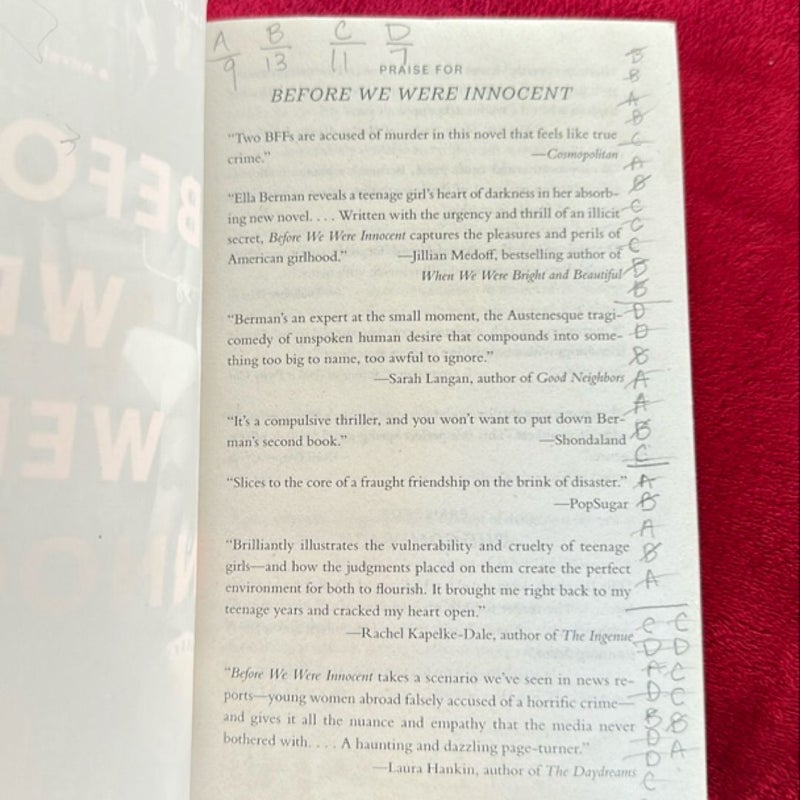 A B C D
9 13 11 7
PRAISE FOR
BEFORE WE WERE INNOCENT
“Two BFFs are accused of murder in this novel that feels like true
crime.” —Cosmopolitan
“Ella Berman reveals a teenage girl’s heart of darkness in her absorb-
ing new novel. . . . Written with the urgency and thrill of an illicit
secret, Before We Were Innocent captures the pleasures and perils of
American girlhood.” —Jillian Medoff, bestselling author of
When We Were Bright and Beautiful
“Berman’s an expert at the small moment, the Austenesque tragi-
comedy of unspoken human desire that compounds into some-
thing too big to name, too awful to ignore.”
—Sarah Langan, author of Good Neighbors
“It’s a compulsive thriller, and you won’t want to put down Ber-
man’s second book.” —Shondaland
“Slices to the core of a fraught friendship on the brink of disaster.”
—PopSugar
“Brilliantly illustrates the vulnerability and cruelty of teenage
girls—and how the judgments placed on them create the perfect
environment for both to flourish. It brought me right back to my
teenage years and cracked my heart open.”
—Rachel Kapelke-Dale, author of The Ingenue
“Before We Were Innocent takes a scenario we’ve seen in news re-
ports—young women abroad falsely accused of a horrific crime—
and gives it all the nuance and empathy that the media never
bothered with. . . . A haunting and dazzling page-turner.”
—Laura Hankin, author of The Daydreams
A
C
A
C
C
C
A
A
C
A
B
A
B
A
C C
D D
A C
D C
B B
D A
D
C